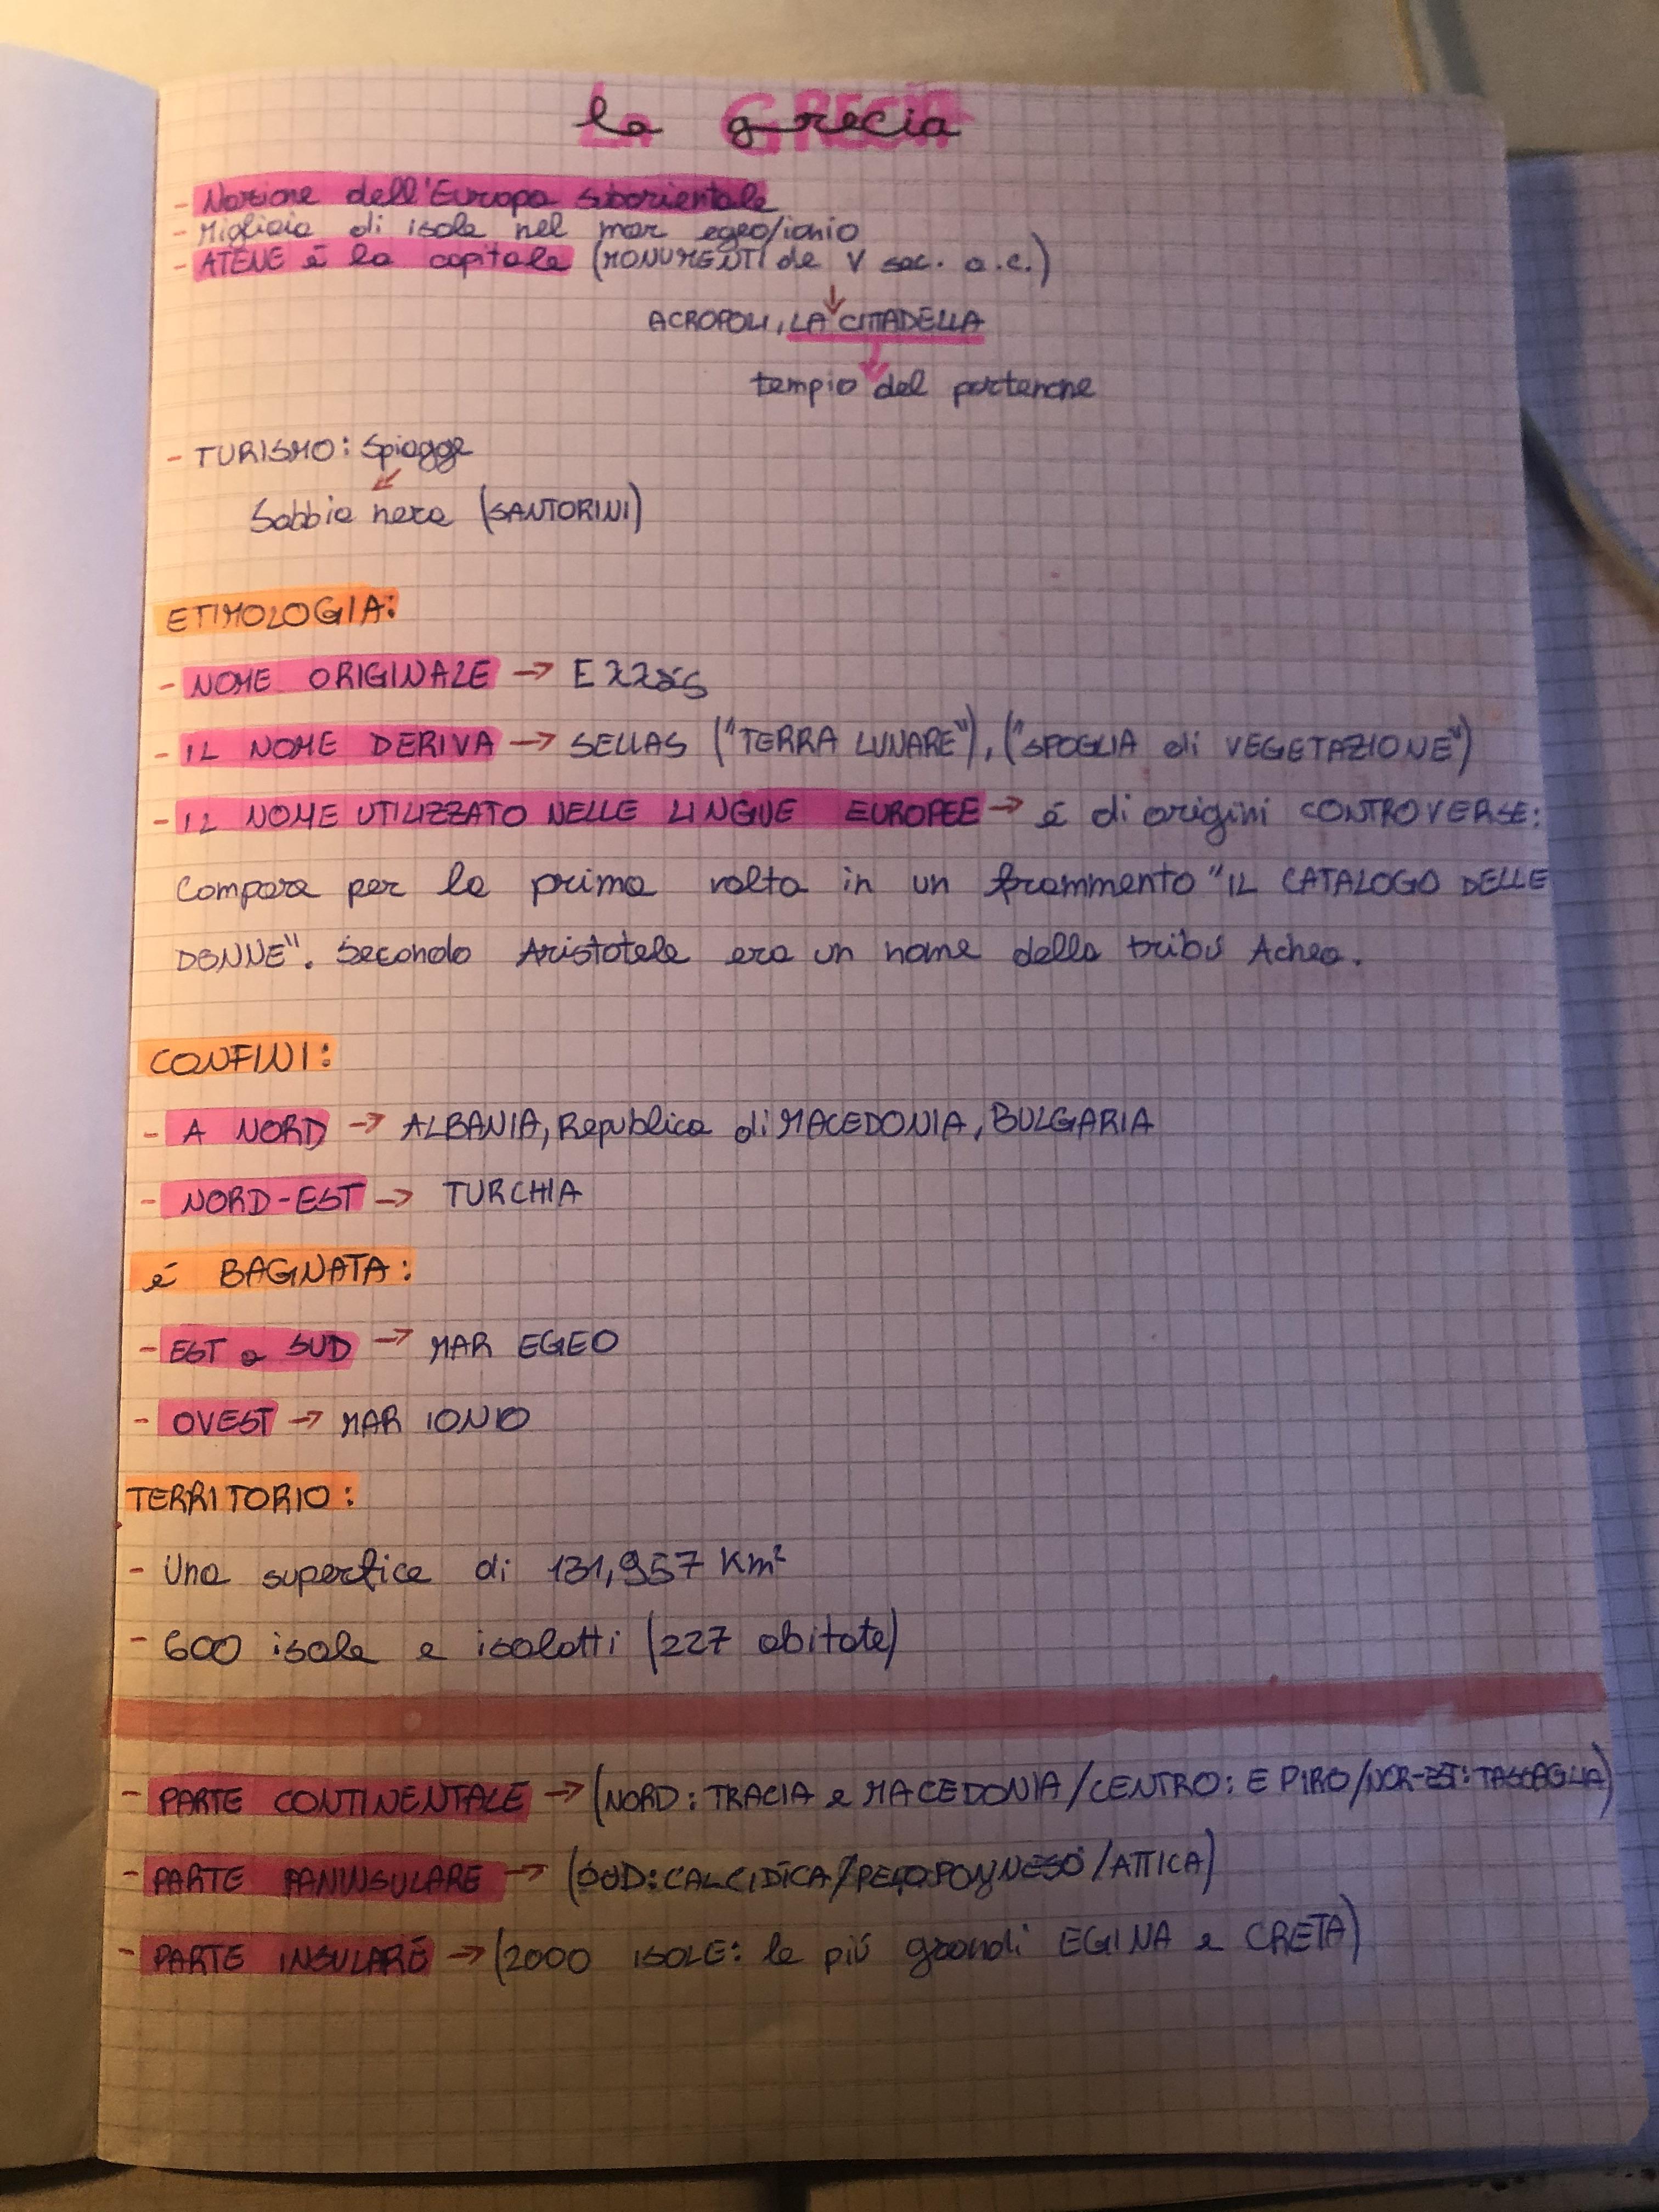 la grecia
- Nazione dell'Europa suborientale
- Migliaia di isole nel mar egeo/ionio
- ATENE é la capitale (MONUMENTI de V sec. a.c.)
ACROPOLI, LA CITTADELLA
tempio del partenone
- TURISMO: Spiagge
Sabbia nera (SANTORINI)
ETIMOLOGIA:
- NOME ORIGINALE → Ελλάς
- IL NOME DERIVA → SELLAS ("TERRA LUNARE"), ("SPOGLIA di VEGETAZIONE")
- IL NOME UTILIZZATO NELLE LINGUE EUROPEE → é di origini CONTROVERSE:
Compare per la prima volta in un frammento "IL CATALOGO DELLE
DONNE". Secondo Aristotele era un nome della tribú Achea.
CONFINI:
- A NORD → ALBANIA, Repubblica di MACEDONIA, BULGARIA
- NORD-EST → TURCHIA
é BAGNATA:
- EST e SUD → MAR EGEO
- OVEST → MAR IONIO
TERRITORIO:
- Una superfice di 131,957 Km²
- 600 isole e isolotti (227 abitate)
- PARTE CONTINENTALE → (NORD: TRACIA e MACEDONIA/CENTRO: EPIRO/NOR-EST: TASSAGLIA)
- PARTE PANINSULARE → (SUD: CALCIDICA/PELOPONNESO/ATTICA)
- PARTE INSULARE → (2000 ISOLE: le piú grandi EGINA e CRETA)